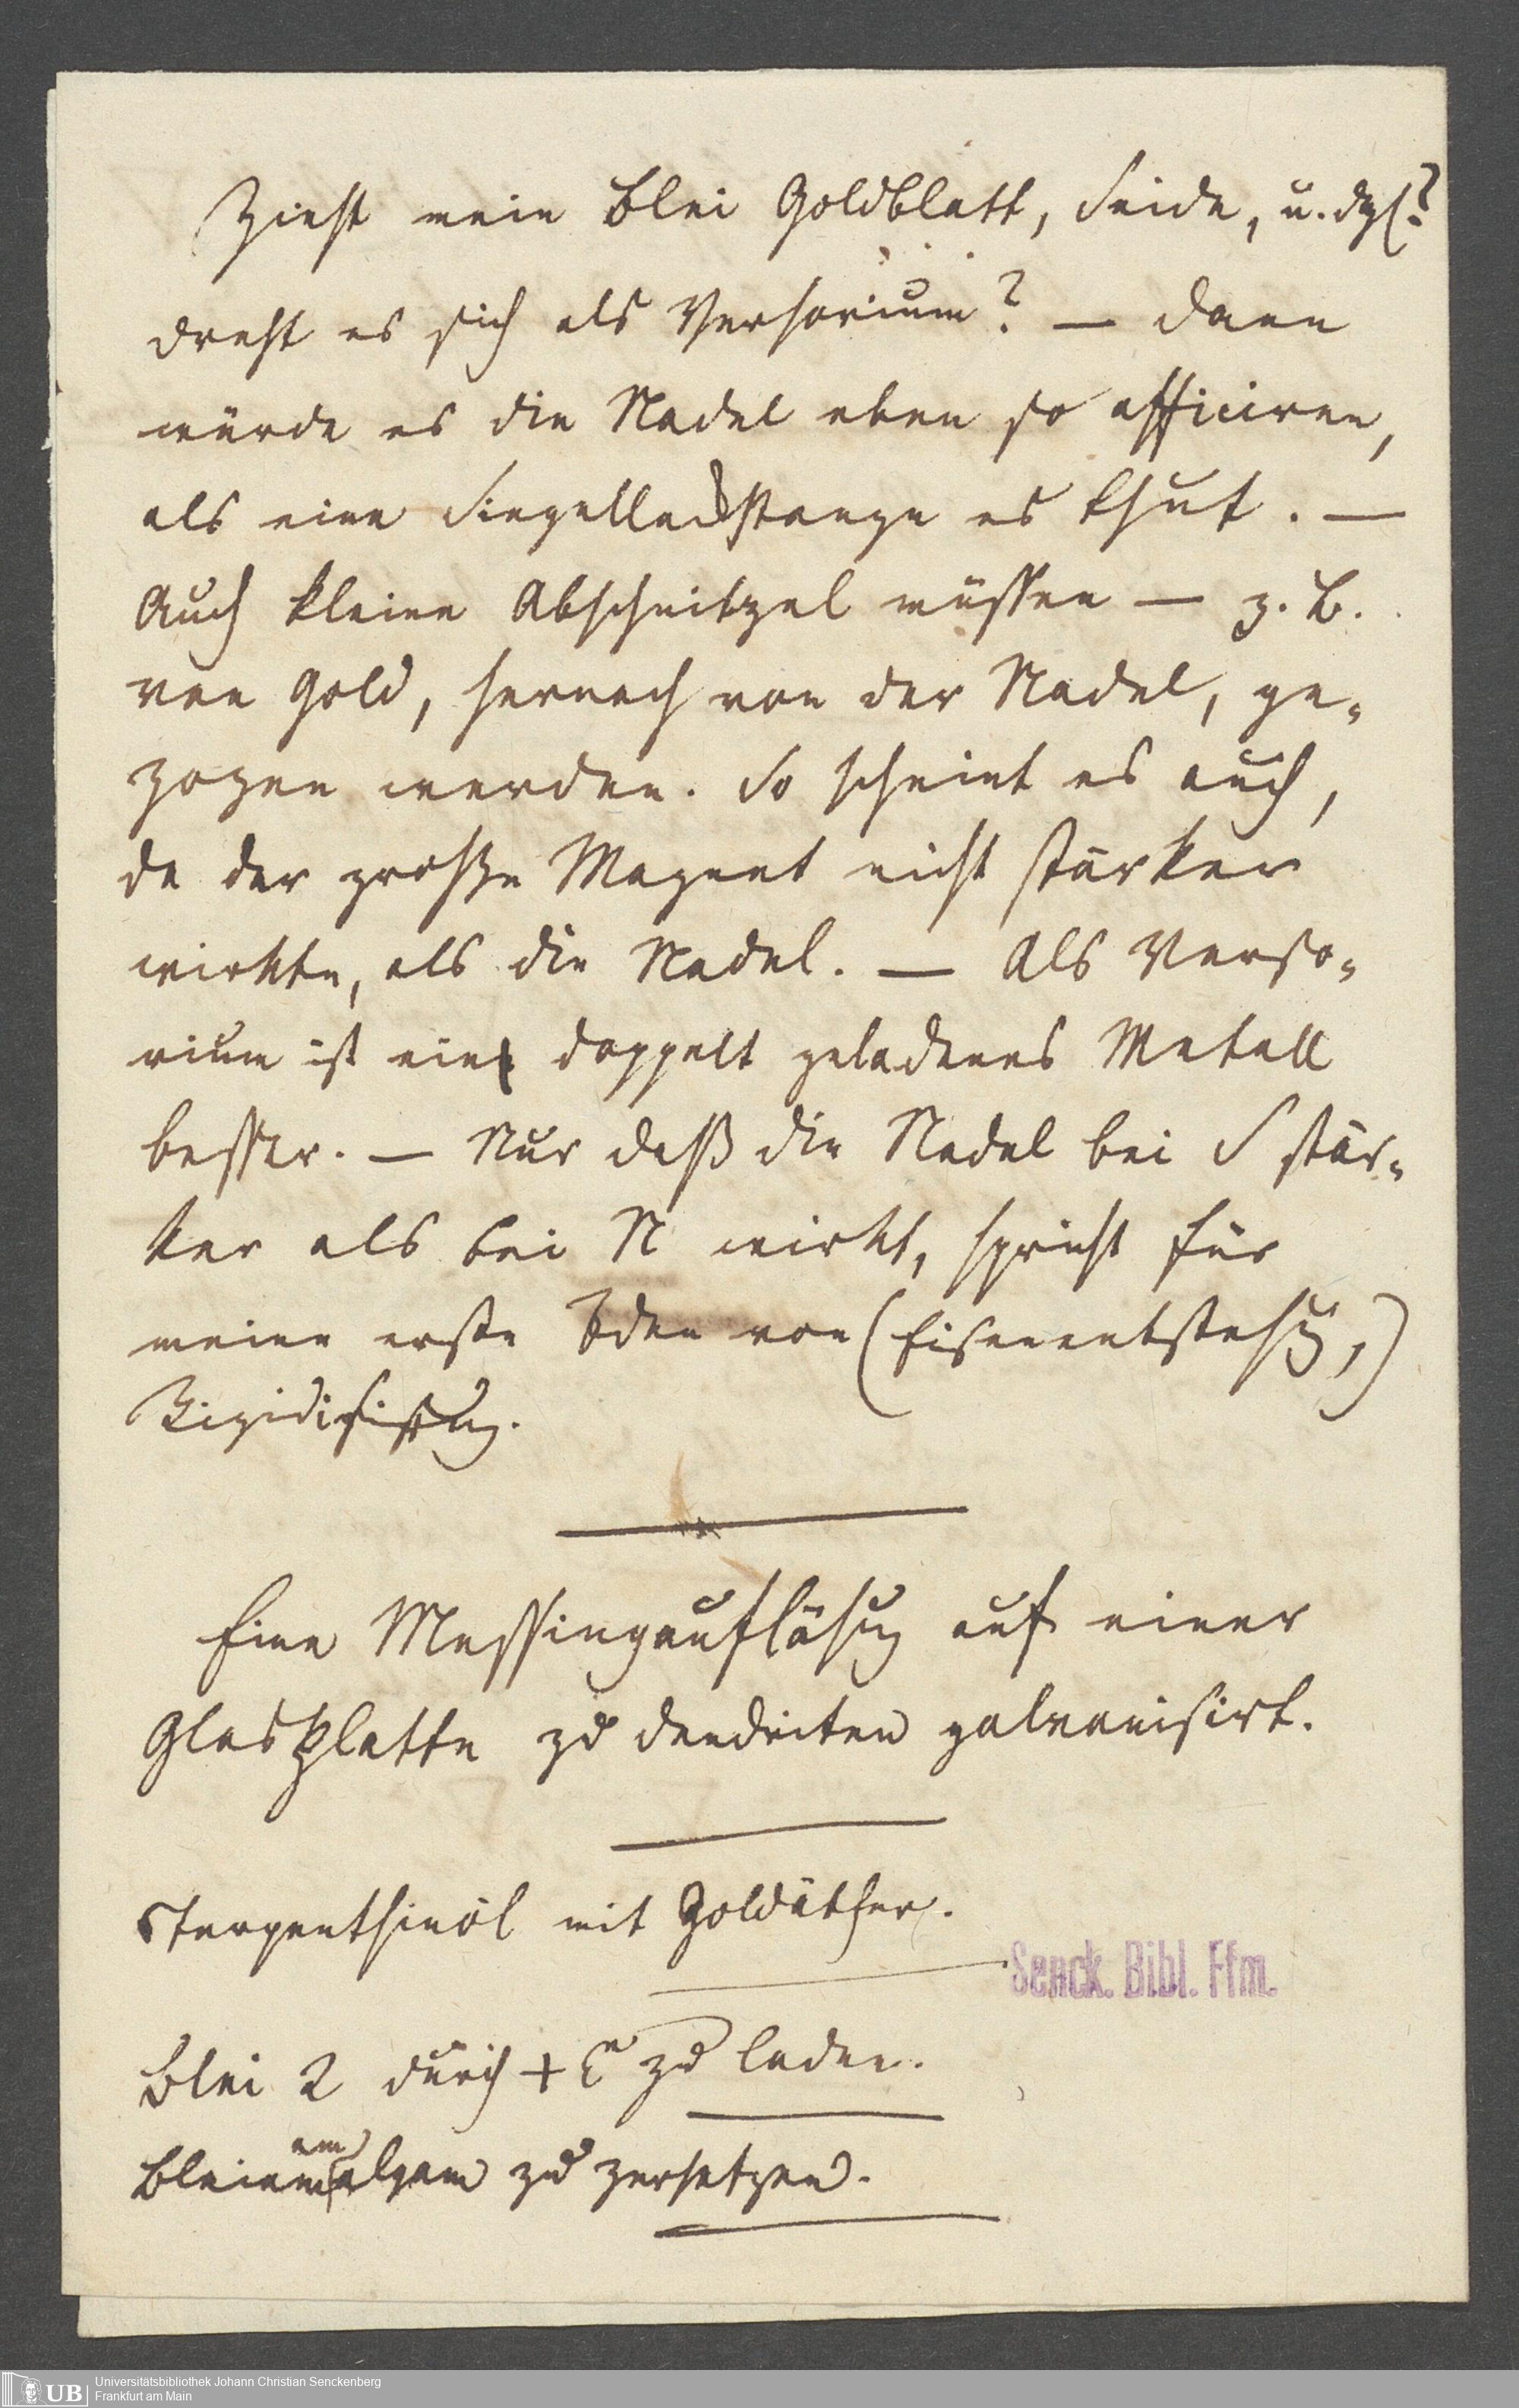 Zieht mein Blei Goldblatt, Seide, u. dgl.?
dreht es sich als Versorium? — dann
würde es die Nadel eben so afficiren,
als eine Siegellackstange es thut. —
Auch kleine Abschnitzel müssen — z. B.
von Gold, hernach von der Nadel, ge-
zogen werden. So scheint es auch,
da der große Magnet nicht stärker
wirkte, als die Nadel. — Als Verso-
rium ist ein doppelt geladenes Metall
besser. — Nur daß die Nadel bei S stär-
ker als bei N wirkt, spricht für
meine erste Idee von (Eisenentstehg,)
Eine Messingauflösug auf einer
Glasplatte zu Dendriten galvanisirt.
Terpenthinöl mit Goldäther.
Senck. Bibl. Ffm.
Blei 2 durch + E zu laden.
Bleiamalgam zu zersetzen.
UB Universitätsbibliothek Johann Christian Senckenberg
Frankfurt am Main